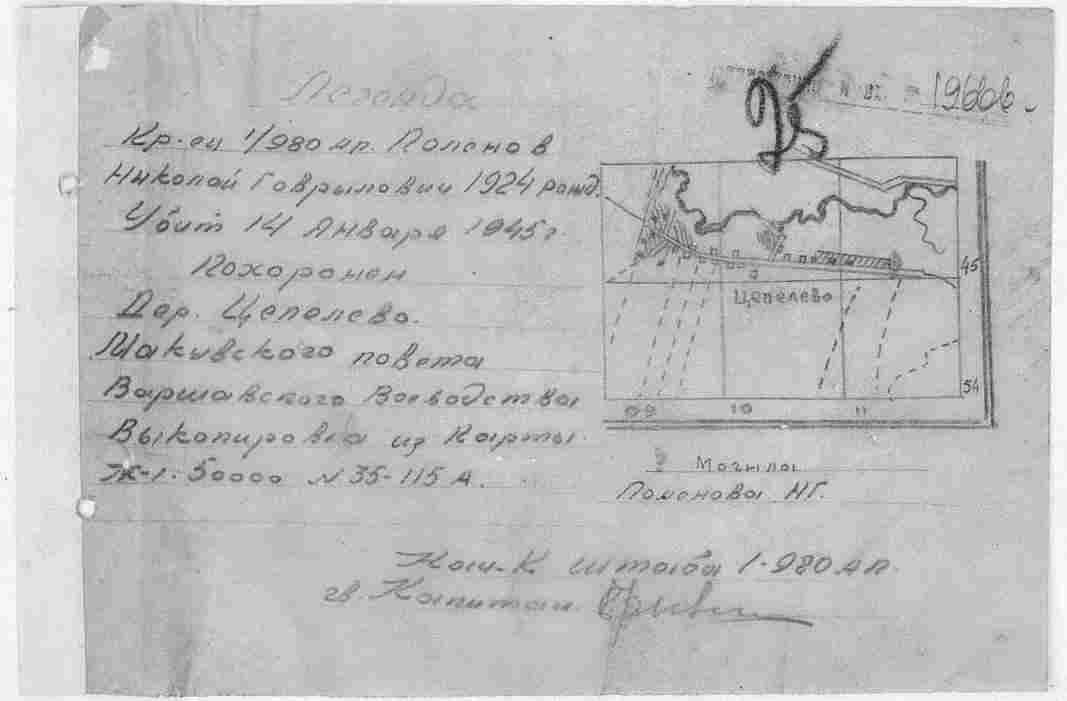 Легенда
19660в.
Кр-ец 1/980 АП. Поленов
Николай Гаврилович 1924 рожд.
Убит 14 Января 1945 г.
Похоронен
Дер. Цепелево.
Маковского повета
Варшавского Воеводства
Выкопировка из Карты.
Ж-1. 50000 N 35-115 А.
Цепелево
45
54
09 10 11
Могила
Поленова НГ.
Нач-к штаба 1-980 АП.
гв. Капитан